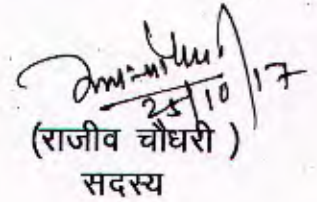 25/10/17
(राजीव चौधरी )
सदस्य